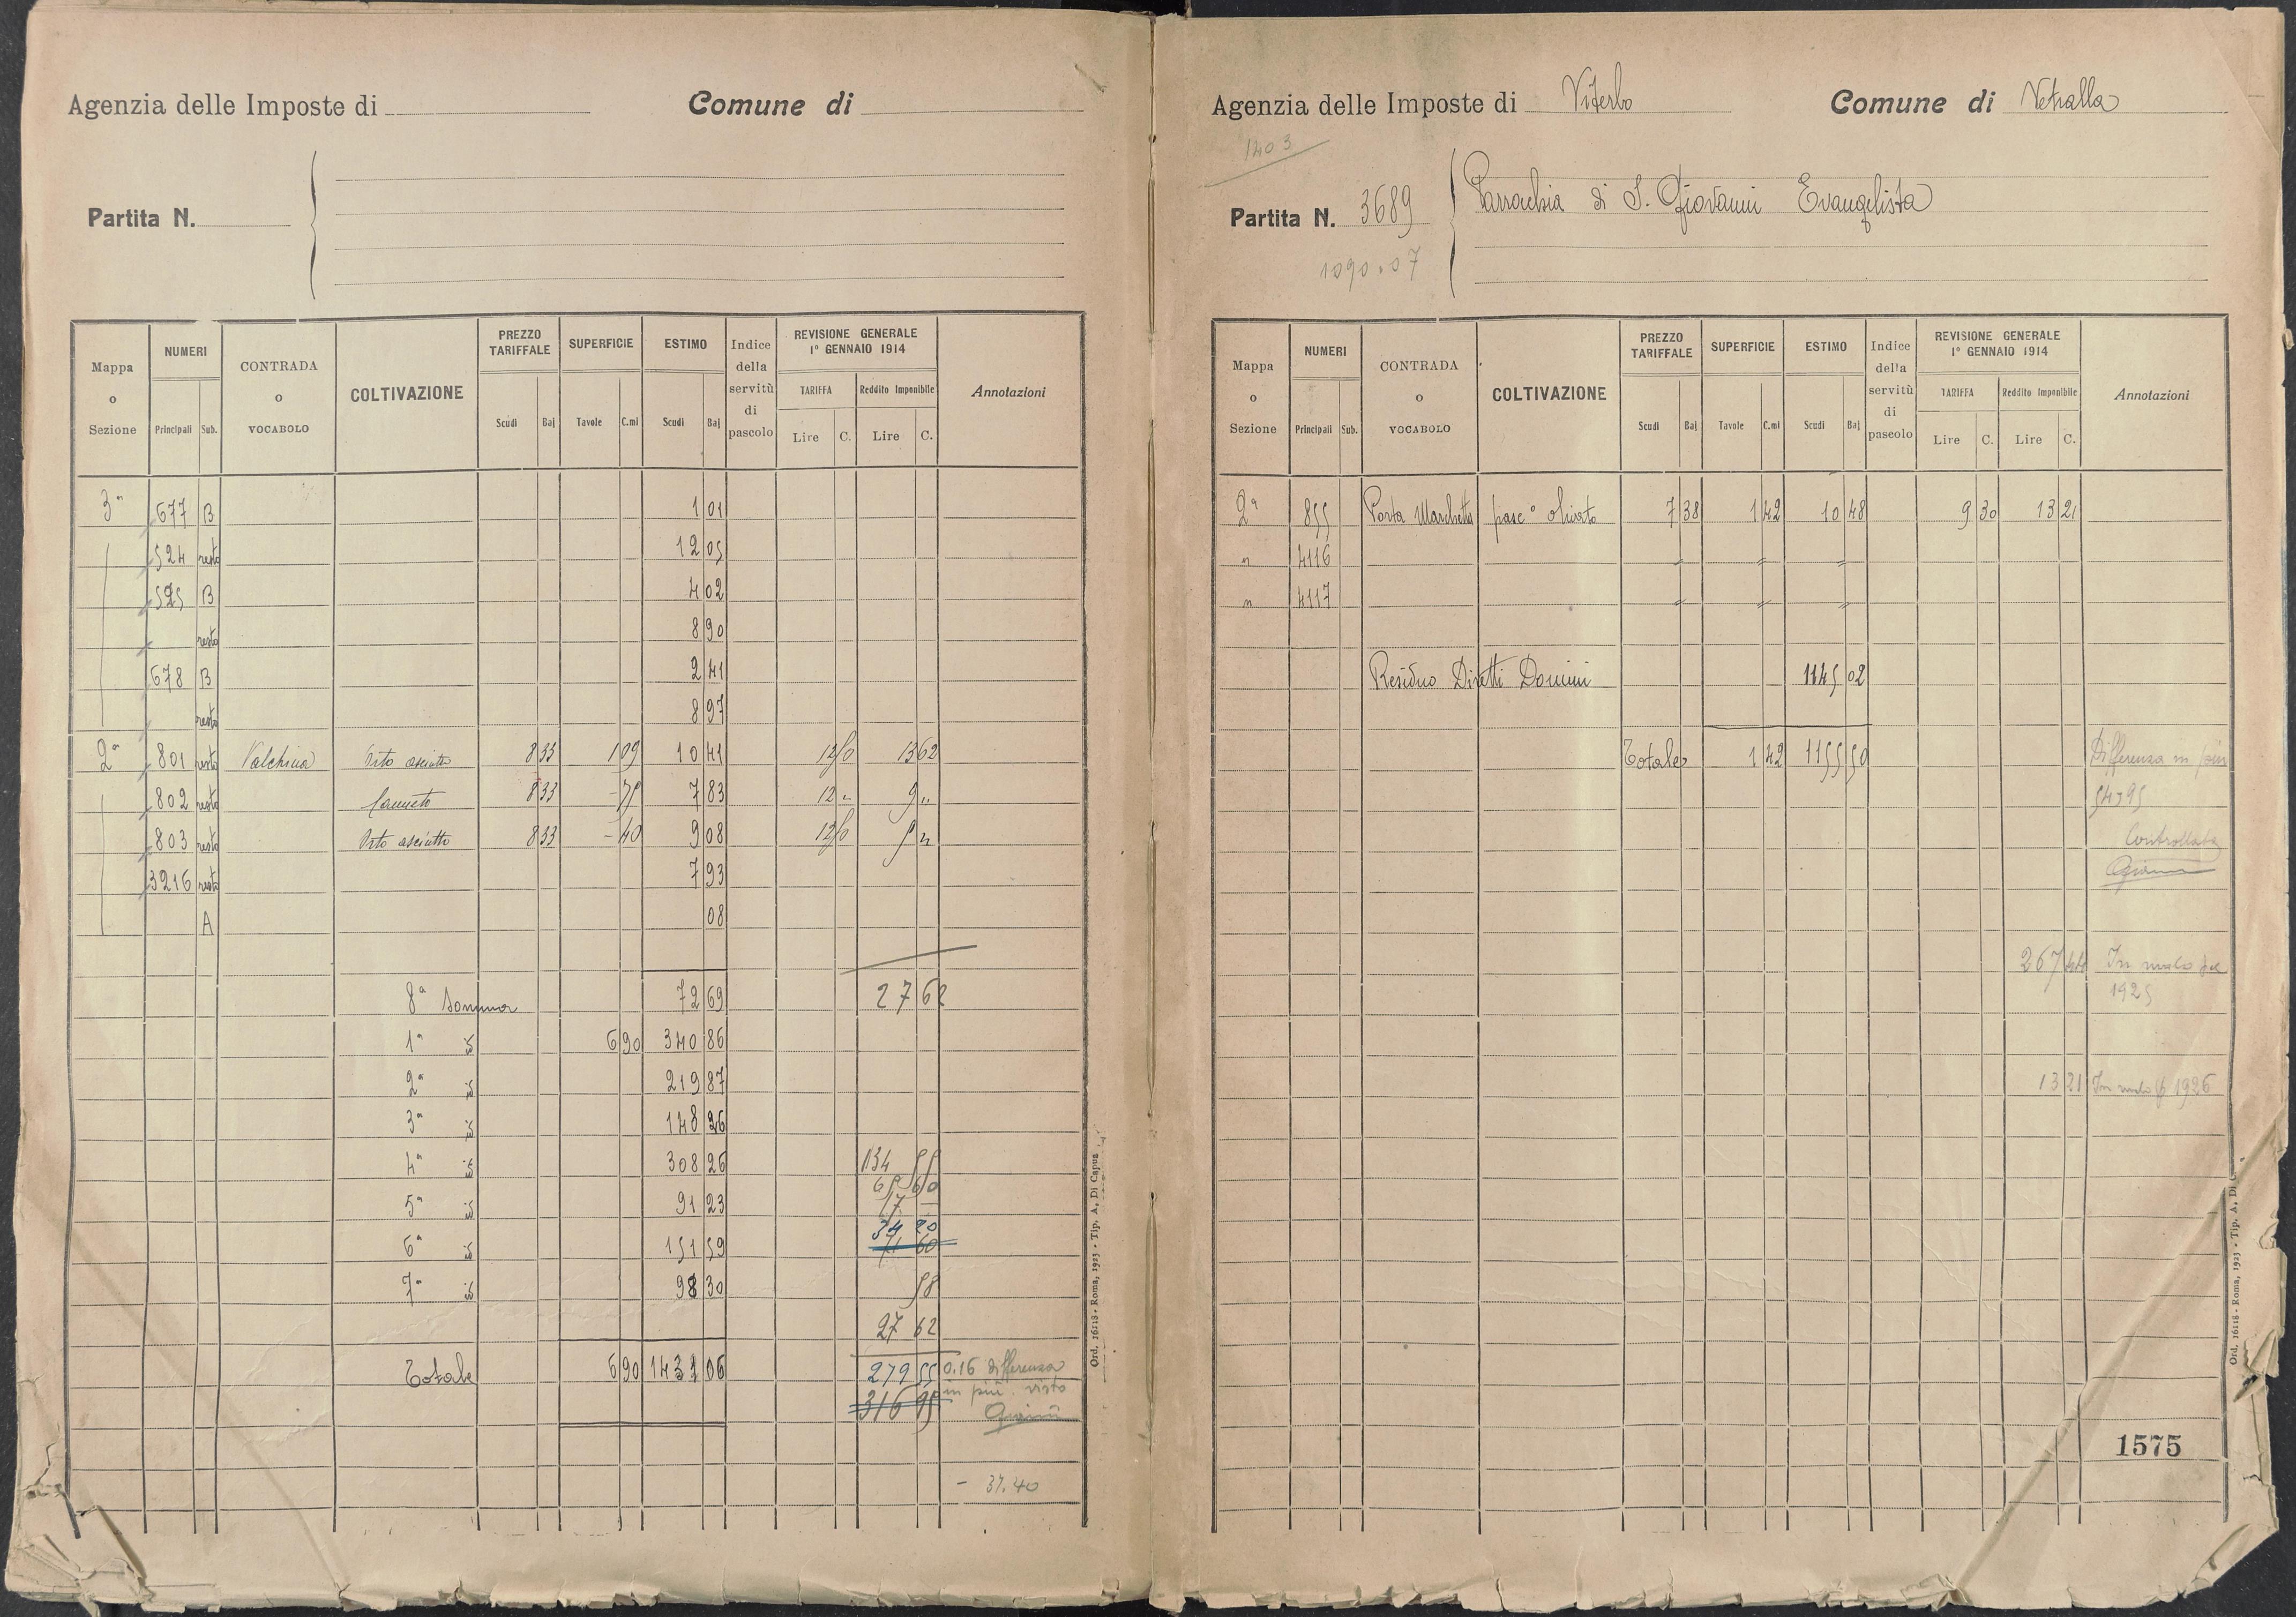 Agenzia delle Imposte di
Comune di
Partita N.
Mappa o Sezione
NUMERI
Principali Sub.
CONTRADA o VOCABOLO
COLTIVAZIONE
PREZZO TARIFFALE
Scudi Baj
SUPERFICIE
Tavole C.mi
ESTIMO
Scudi Baj
Indice della servitù di pascolo
REVISIONE GENERALE 1° GENNAIO 1914
TARIFFA
Lire C.
Reddito Imponibile
Lire C.
Annotazioni
3ª 677 B 1 01
524 resto 12 05
525 B 4 02
resto 8 90
678 B 2 41
resto 8 97
2ª 801 resto Valchina Orto asciutto 8 33 1 09 10 41 12 50 13 62
802 resto Canneto 8 33 - 75 7 83 12 " 9 "
803 resto Orto asciutto 8 33 - 40 9 08 12 50 5 "
3216 resto 7 93
A 08
8ª Somma 72 69 27 62
1ª id 6 90 340 86
2ª id 219 87
3ª id 148 26
4ª id 308 26 134 55
65 60
5ª id 91 23 17 -
34 20
6ª id 151 59 71 60
7ª id 98 30 58
27 62
Totale 6 90 1431 06 279 55 0.16 differenza
316 95 in più. visto
- 37.40
Ord. 16118 - Roma, 1923 - Tip. A. Di Capua
Agenzia delle Imposte di Viterbo
Comune di Vetralla
1403
Partita N. 3689
Parrochia di S. Giovanni Evangelista
1090.07
Mappa o Sezione
NUMERI
Principali Sub.
CONTRADA o VOCABOLO
COLTIVAZIONE
PREZZO TARIFFALE
Scudi Baj
SUPERFICIE
Tavole C.mi
ESTIMO
Scudi Baj
Indice della servitù di pascolo
REVISIONE GENERALE 1° GENNAIO 1914
TARIFFA
Lire C.
Reddito Imponibile
Lire C.
Annotazioni
2ª 855 Porta Marchetta pasc° olivato 7 38 1 42 10 48 9 30 13 21
" 4116
" 4117
Residuo Diretti Domini 1145 02
Totale 1 42 1155 50 Differenza in più
54,95
Controllata
267 44 In ruolo pel
1925
13 21 In ruolo 1926
1575
Ord. 16118 - Roma, 1923 - Tip. A. Di C